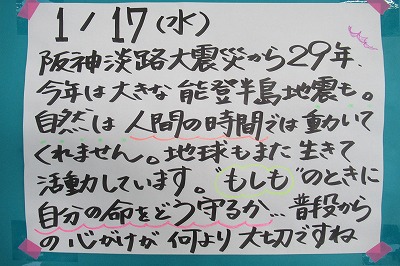 1/17(水)
阪神淡路大震災から29年、
今年は大きな能登半島地震も。
自然は人間の時間では動いて
くれません。地球もまた生きて
活動しています。"もしも"のときに
自分の命をどう守るか…普段から
の心がけが何より大切ですね